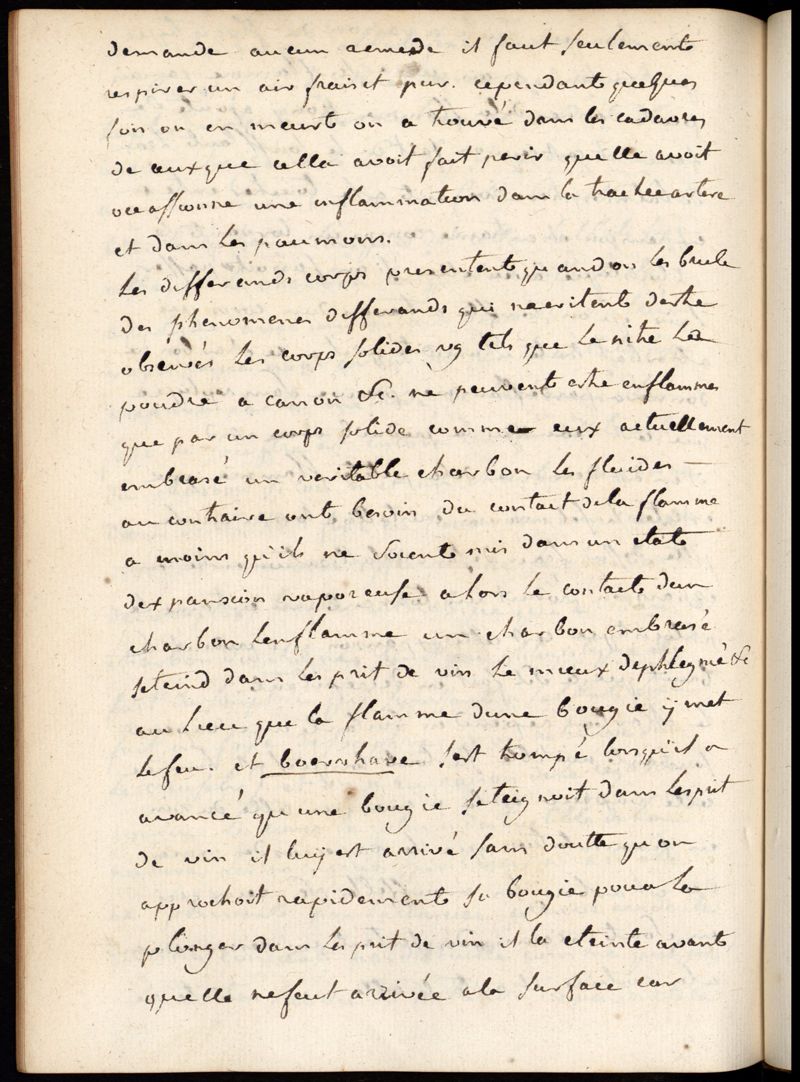 demande aucun remede il faut seulement
respirer un air frais et pur. cependant quelques
fois on en meurt on a trouvé dans les cadavres
de auxque cella avoit fait perir quelle avoit
occassionne une inflammation dans la trachee artere
et dans les paumons.
Les differands corps presentent quand on les brule
des phenomenes differands qui meritent destre
observés les corps solides vg tels que le nitre la
poudre a canon &c. ne peuvent estre enflammes
que par un corps solide comme eux actuellement
embrasé un veritable charbon les fluides
au contraire ont besoin du contact dela flamme
a moins qu'ils ne soient mis dans un état
dexpanscion vaporeuse alors le contact dun
charbon lenflamme un charbon embrasé
seteind dans lesprit de vin le mieux dephlegmé &c
au lieu que la flamme dune bougie ij met
le feu. et boerrhave sest trompé lorsqu'il a
avancé qu'une bougie seteignoit dans lesprit
de vin il luy est arrivé sans doutte quon
approchoit rapidement sa bougie pour la
plonger dans lesprit de vin il la eteinte avant
quelle ne feut arrivée a la surface car